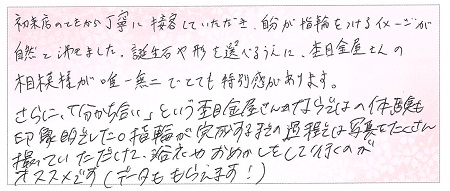 初来店のときから丁寧に接客していただき、自分が指輪をつけるイメージが
自然と沸きました。誕生石や形を選べるうえに、杢目金屋さんの
木目模様が唯一無二でとても特別感があります。
さらに、「分かち合い」という杢目金屋さんならではの体験も
印象的でした。指輪が完成するまでの過程は写真をたくさん
撮っていただけて、浴衣やおめかしをして行くのが
オススメです(データももらえます!)